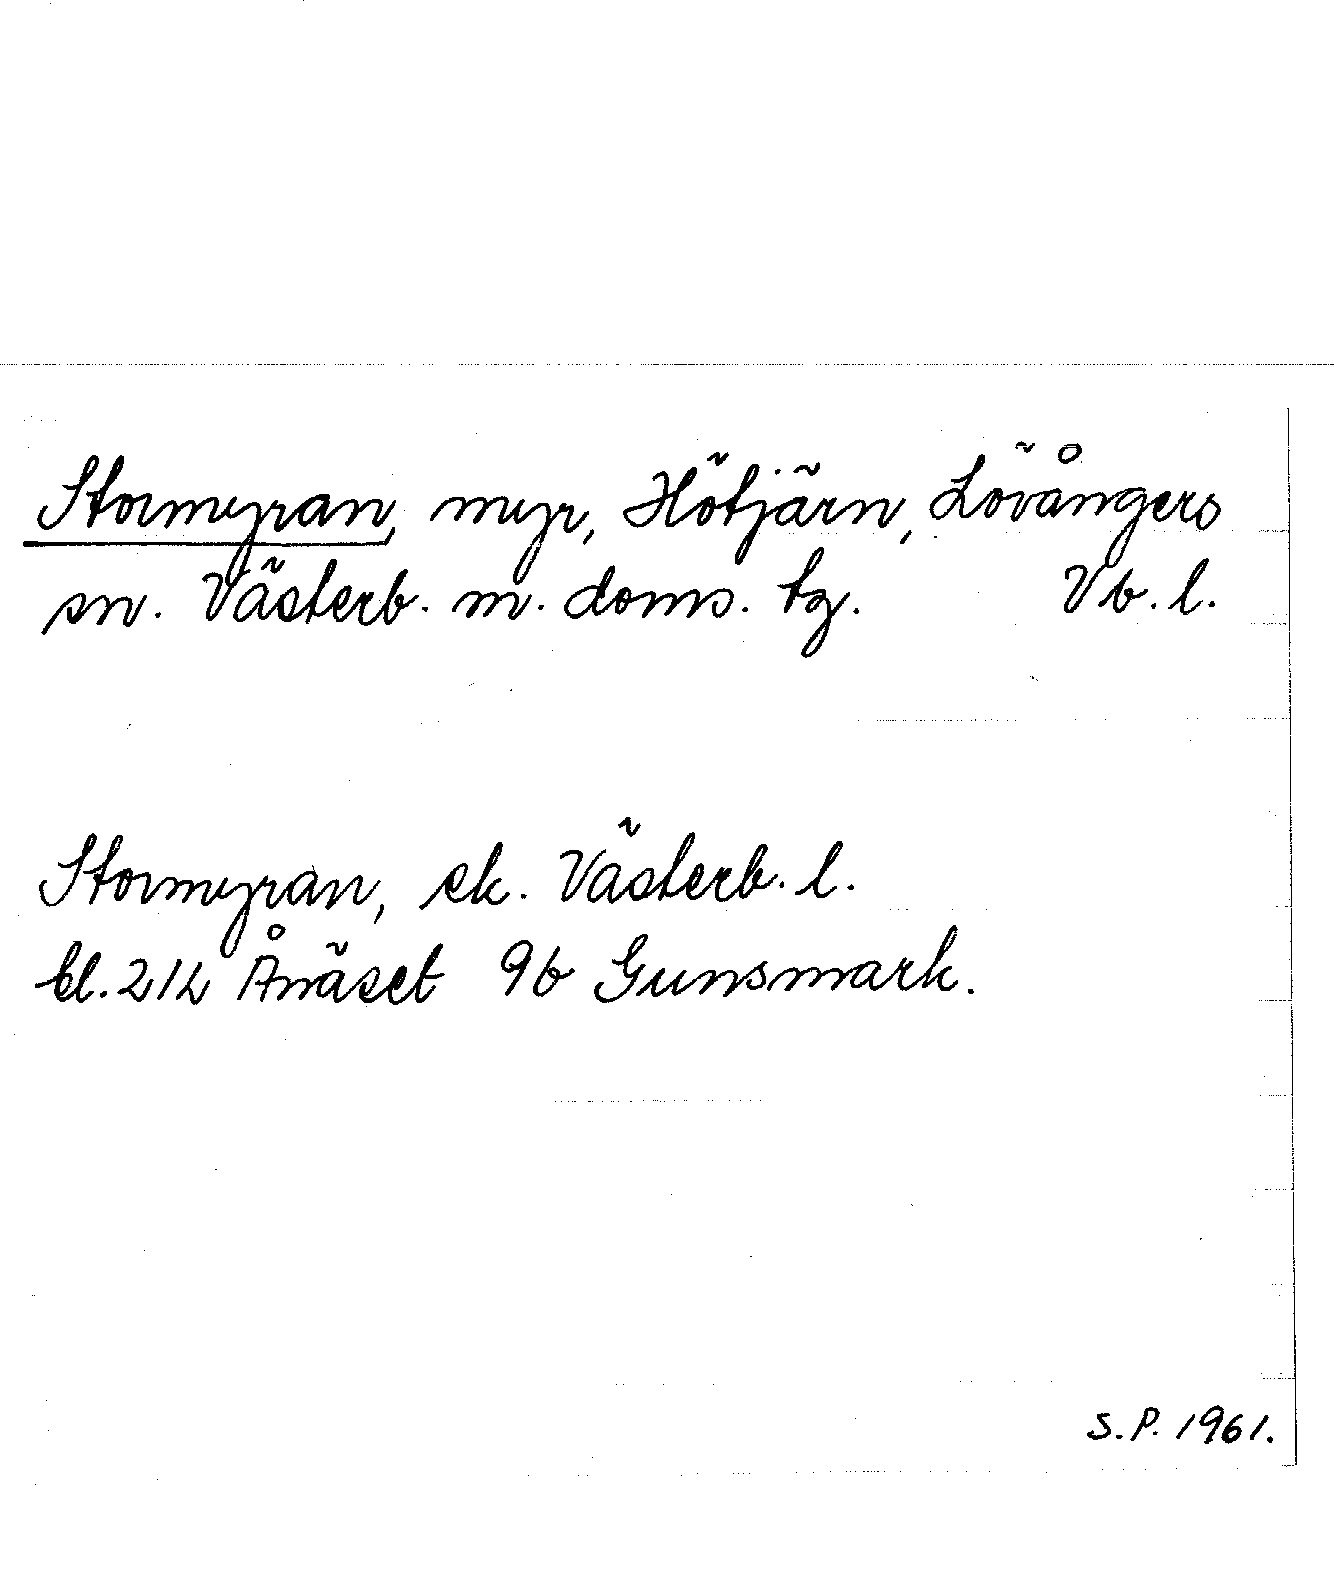 Stormyran, myr, Hötjärn, Lövångers
sn. Västerb. m. doms. tg. Vb. l.
Stormyran, ek. Västerb. l.
bl. 21L Ånäset 9b Gunsmark.
S.P. 1961.